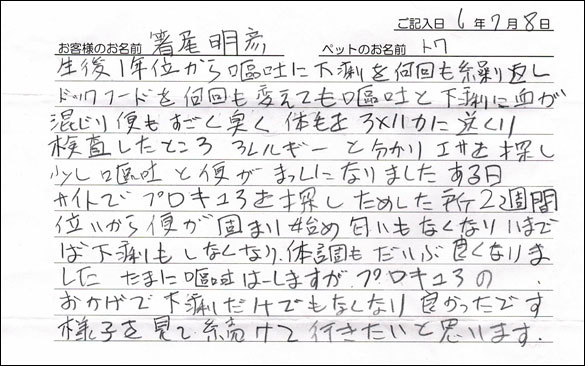 ご記入日 6年7月8日
お客様のお名前 箸尾明彦 ペットのお名前 トワ
生後1年位から嘔吐に下痢を何回も繰り返し
ドックフードを何回も変えても嘔吐と下痢に血が
混じり便もすごく臭く 体毛を アメリカに送くり
検査したところ アレルギーと分かり エサを探し
少し嘔吐と便がましになりました ある日
サイトでプロキュアを探しためした所2週間
位いから便が固まり始め匂いもなくなりいまで
ば下痢もしなくなり、体調もだいぶ良くなりま
した たまに嘔吐はしますが、プロキュアの
おかげで下痢だけでもなくなり良かったです
様子を見て続けて行きたいと思います.